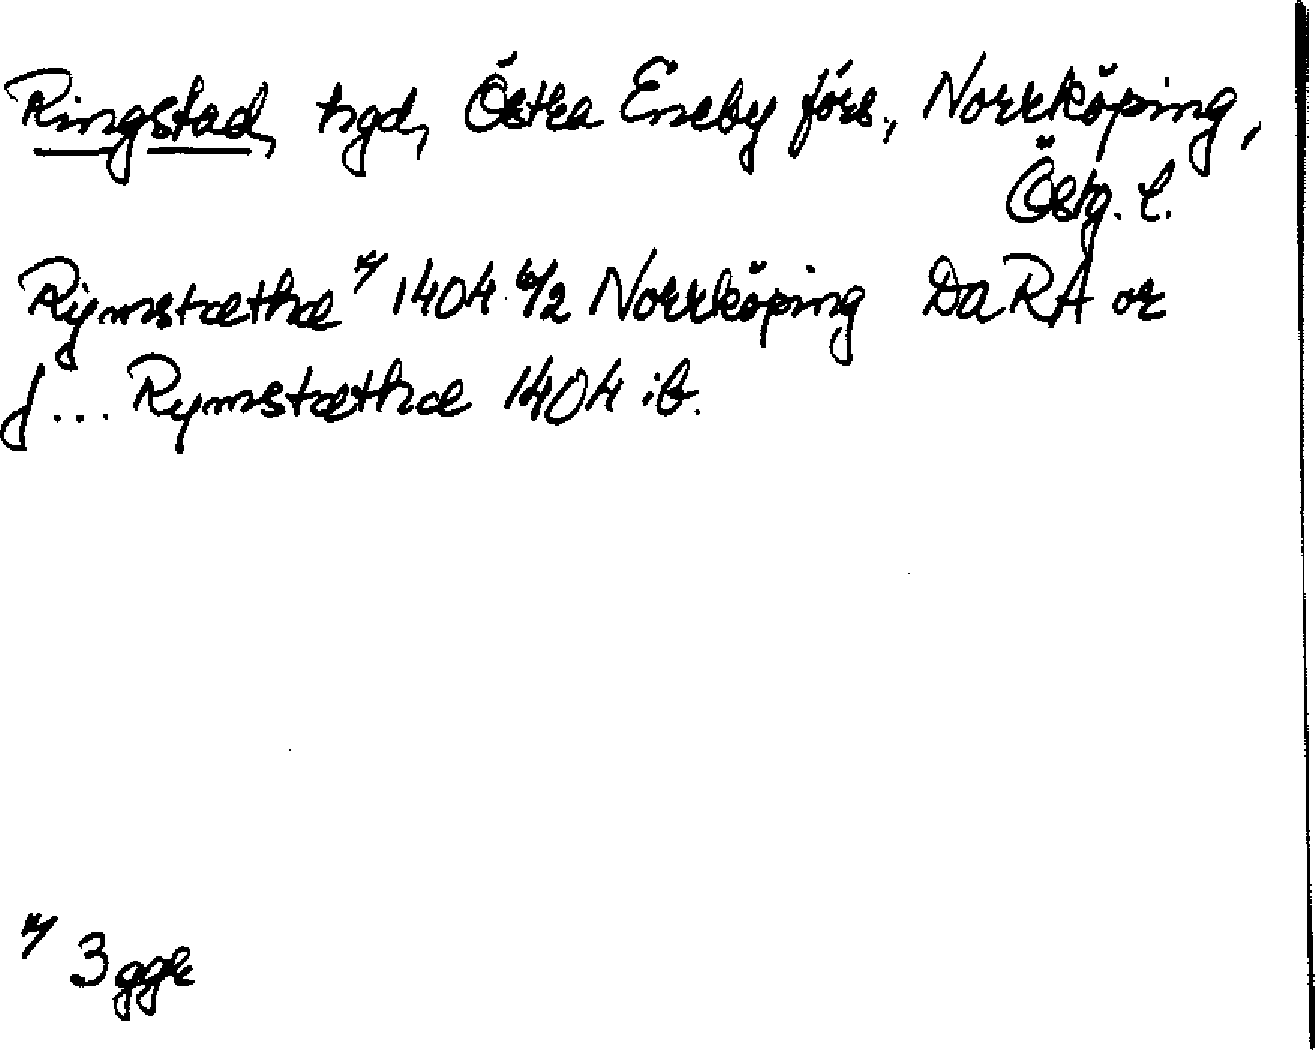 Ringstad, hgd, Östra Eneby förs., Norrköping,
Östg. l.
Rymstæthæ x) 1404 6/2 Norrköping DaRA or
J... Rymstæthæ 1404 ib.
x) 3 ggr